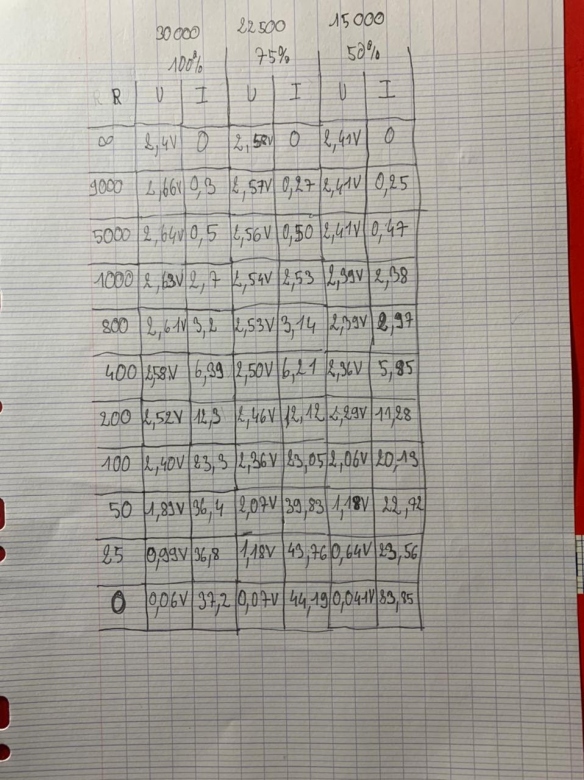 30000 22500 15000
100% 75% 50%
R U I U I U I
∞ 2,4V 0 2,58V 0 2,41V 0
9000 2,66V 0,3 2,57V 0,27 2,41V 0,25
5000 2,64V 0,5 2,56V 0,50 2,41V 0,47
1000 2,63V 2,7 2,54V 2,53 2,39V 2,38
800 2,61V 3,2 2,53V 3,14 2,39V 2,97
400 2,58V 6,39 2,50V 6,21 2,36V 5,85
200 2,52V 12,3 2,46V 12,12 2,29V 11,28
100 2,40V 23,3 2,36V 23,05 2,06V 20,13
50 1,89V 36,4 2,07V 39,83 1,18V 22,72
25 0,99V 36,8 1,18V 43,76 0,64V 23,56
0 0,06V 37,2 0,07V 44,19 0,041V 83,85